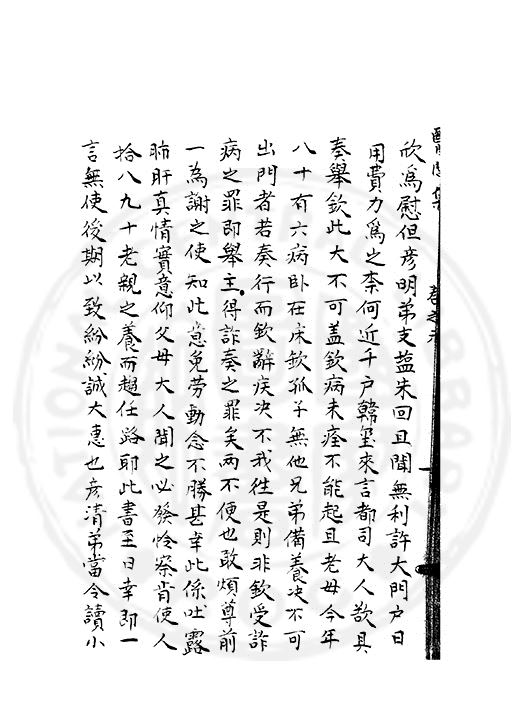 欣為慰但彦明弟支塩未回且聞無利許大門户日
用費力為之柰何近千户韓璽來言都司大人欲具
奏舉欽此大不可盖欽病未痊不能起且老母今年
八十有六病卧在床欽孤子無他兄弟備養决不可
出門者若奏行而欽辭疾决不我徃是則非欽受詐
病之罪即舉主得詐奏之罪矣兩不便也敢煩尊前
一為謝之使知此意免勞動念不勝甚幸此係吐露
肺肝真情實意仰父母大人聞之必發怜察肯使人
拾八九十老親之養而趨仕路耶此書至日幸即一
言無使後期以致紛紛誠大惠也彦清弟當令讀小